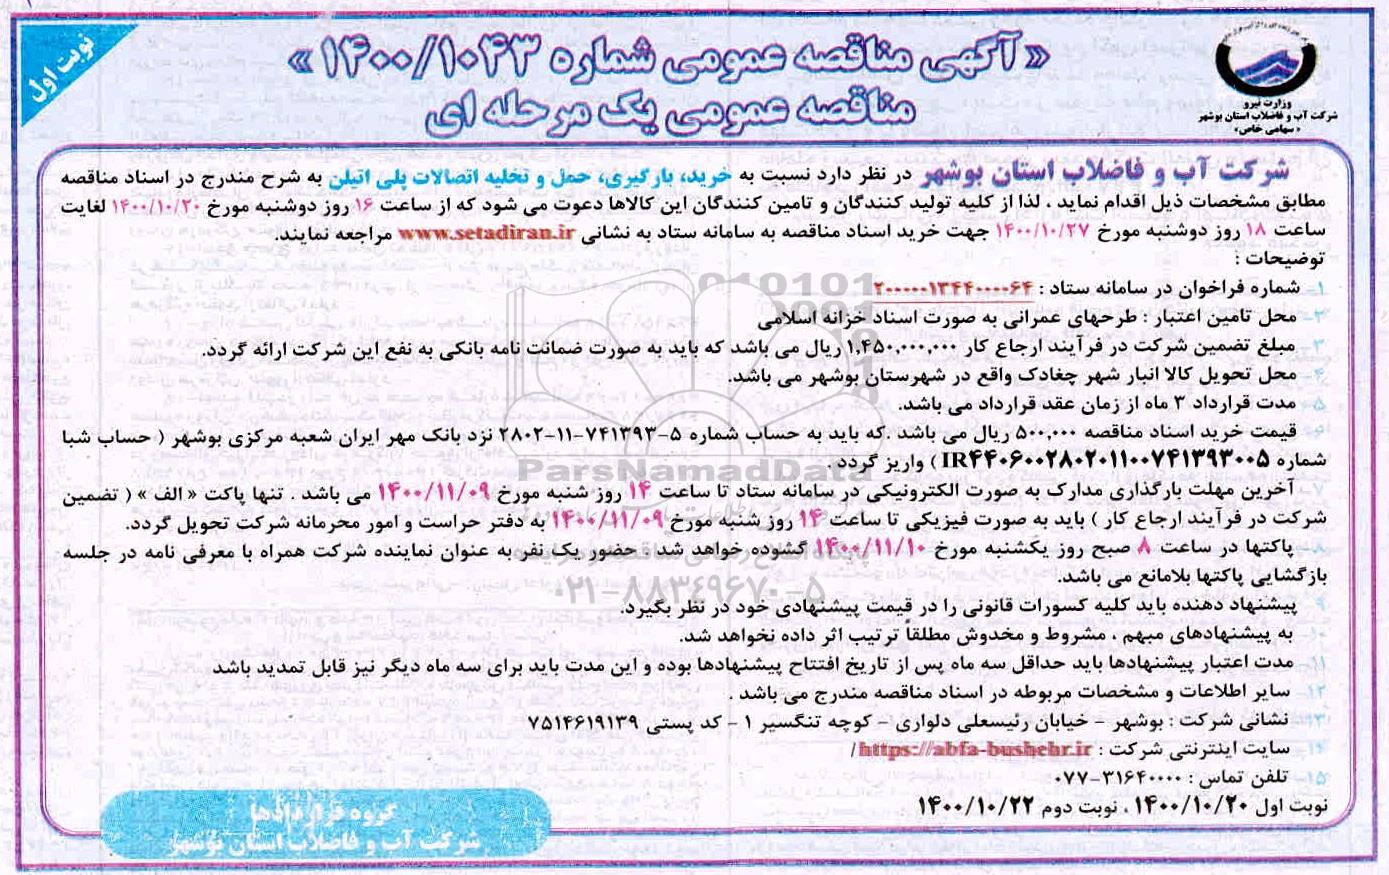 نوبت اول
« آگهی مناقصه عمومی شماره ۱۴۰۰/۱۰۴۳ »
مناقصه عمومی یک مرحله ای
وزارت نیرو
شرکت آب و فاضلاب استان بوشهر
« سهامی خاص»
شرکت آب و فاضلاب استان بوشهر در نظر دارد نسبت به خرید، بارگیری، حمل و تخلیه اتصالات پلی اتیلن به شرح مندرج در اسناد مناقصه
مطابق مشخصات ذیل اقدام نماید . لذا از کلیه تولید کنندگان و تامین کنندگان این کالاها دعوت می شود که از ساعت ۱۶ روز دوشنبه مورخ ۱۴۰۰/۱۰/۲۰ لغایت
ساعت ۱۸ روز دوشنبه مورخ ۱۴۰۰/۱۰/۲۷ جهت خرید اسناد مناقصه به سامانه ستاد به نشانی www.setadiran.ir مراجعه نمایند.
توضیحات :
۱- شماره فراخوان در سامانه ستاد : ۲۰۰۰۰۰۱۳۴۴۰۰۰۰۶۴
۲- محل تامین اعتبار : طرحهای عمرانی به صورت اسناد خزانه اسلامی
۳- مبلغ تضمین شرکت در فرآیند ارجاع کار ۱,۴۵۰,۰۰۰,۰۰۰ ریال می باشد که باید به صورت ضمانت نامه بانکی به نفع این شرکت ارائه گردد.
۴- محل تحویل کالا انبار شهر چغادک واقع در شهرستان بوشهر می باشد.
۵- مدت قرارداد ۳ ماه از زمان عقد قرارداد می باشد.
۶- قیمت خرید اسناد مناقصه ۵۰۰,۰۰۰ ریال می باشد .که باید به حساب شماره ۵-۷۴۱۳۹۳-۱۱-۲۸۰۲ نزد بانک مهر ایران شعبه مرکزی بوشهر ( حساب شبا
شماره IR۴۴۰۶۰۰۲۸۰۲۰۱۱۰۰۷۴۱۳۹۳۰۰۵ ) واریز گردد.
۷- آخرین مهلت بارگذاری مدارک به صورت الکترونیکی در سامانه ستاد تا ساعت ۱۴ روز شنبه مورخ ۱۴۰۰/۱۱/۰۹ می باشد . تنها پاکت « الف » ( تضمین
شرکت در فرآیند ارجاع کار ) باید به صورت فیزیکی تا ساعت ۱۴ روز شنبه مورخ ۱۴۰۰/۱۱/۰۹ به دفتر حراست و امور محرمانه شرکت تحویل گردد.
۸- پاکتها در ساعت ۸ صبح روز یکشنبه مورخ ۱۴۰۰/۱۱/۱۰ گشوده خواهد شد . حضور یک نفر به عنوان نماینده شرکت همراه با معرفی نامه در جلسه
بازگشایی پاکتها بلامانع می باشد.
۹- پیشنهاد دهنده باید کلیه کسورات قانونی را در قیمت پیشنهادی خود در نظر بگیرد.
۱۰- به پیشنهادهای مبهم ، مشروط و مخدوش مطلقاً ترتیب اثر داده نخواهد شد.
۱۱- مدت اعتبار پیشنهادها باید حداقل سه ماه پس از تاریخ افتتاح پیشنهادها بوده و این مدت باید برای سه ماه دیگر نیز قابل تمدید باشد
۱۲- سایر اطلاعات و مشخصات مربوطه در اسناد مناقصه مندرج می باشد .
۱۳- نشانی شرکت : بوشهر - خیابان رئیسعلی دلواری - کوچه تنگسیر ۱ - کد پستی ۷۵۱۴۶۱۹۱۳۹
۱۴- سایت اینترنتی شرکت : https://abfa-bushehr.ir/
۱۵- تلفن تماس : ۳۱۶۴۰۰۰۰-۰۷۷
نوبت اول ۱۴۰۰/۱۰/۲۰ ، نوبت دوم ۱۴۰۰/۱۰/۲۲
گروه قراردادها
شرکت آب و فاضلاب استان بوشهر
ParsNamadData
۰۲۱-۸۸۳۴۹۶۷۰-۵